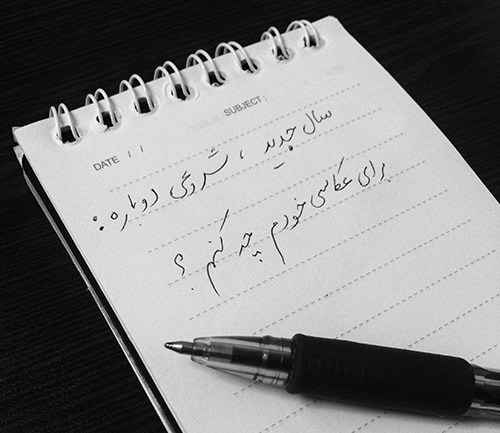 SUBJECT:
DATE / /
سال جدید ، شروعی دوباره :
برای عکاسی خودم چه کنم ؟